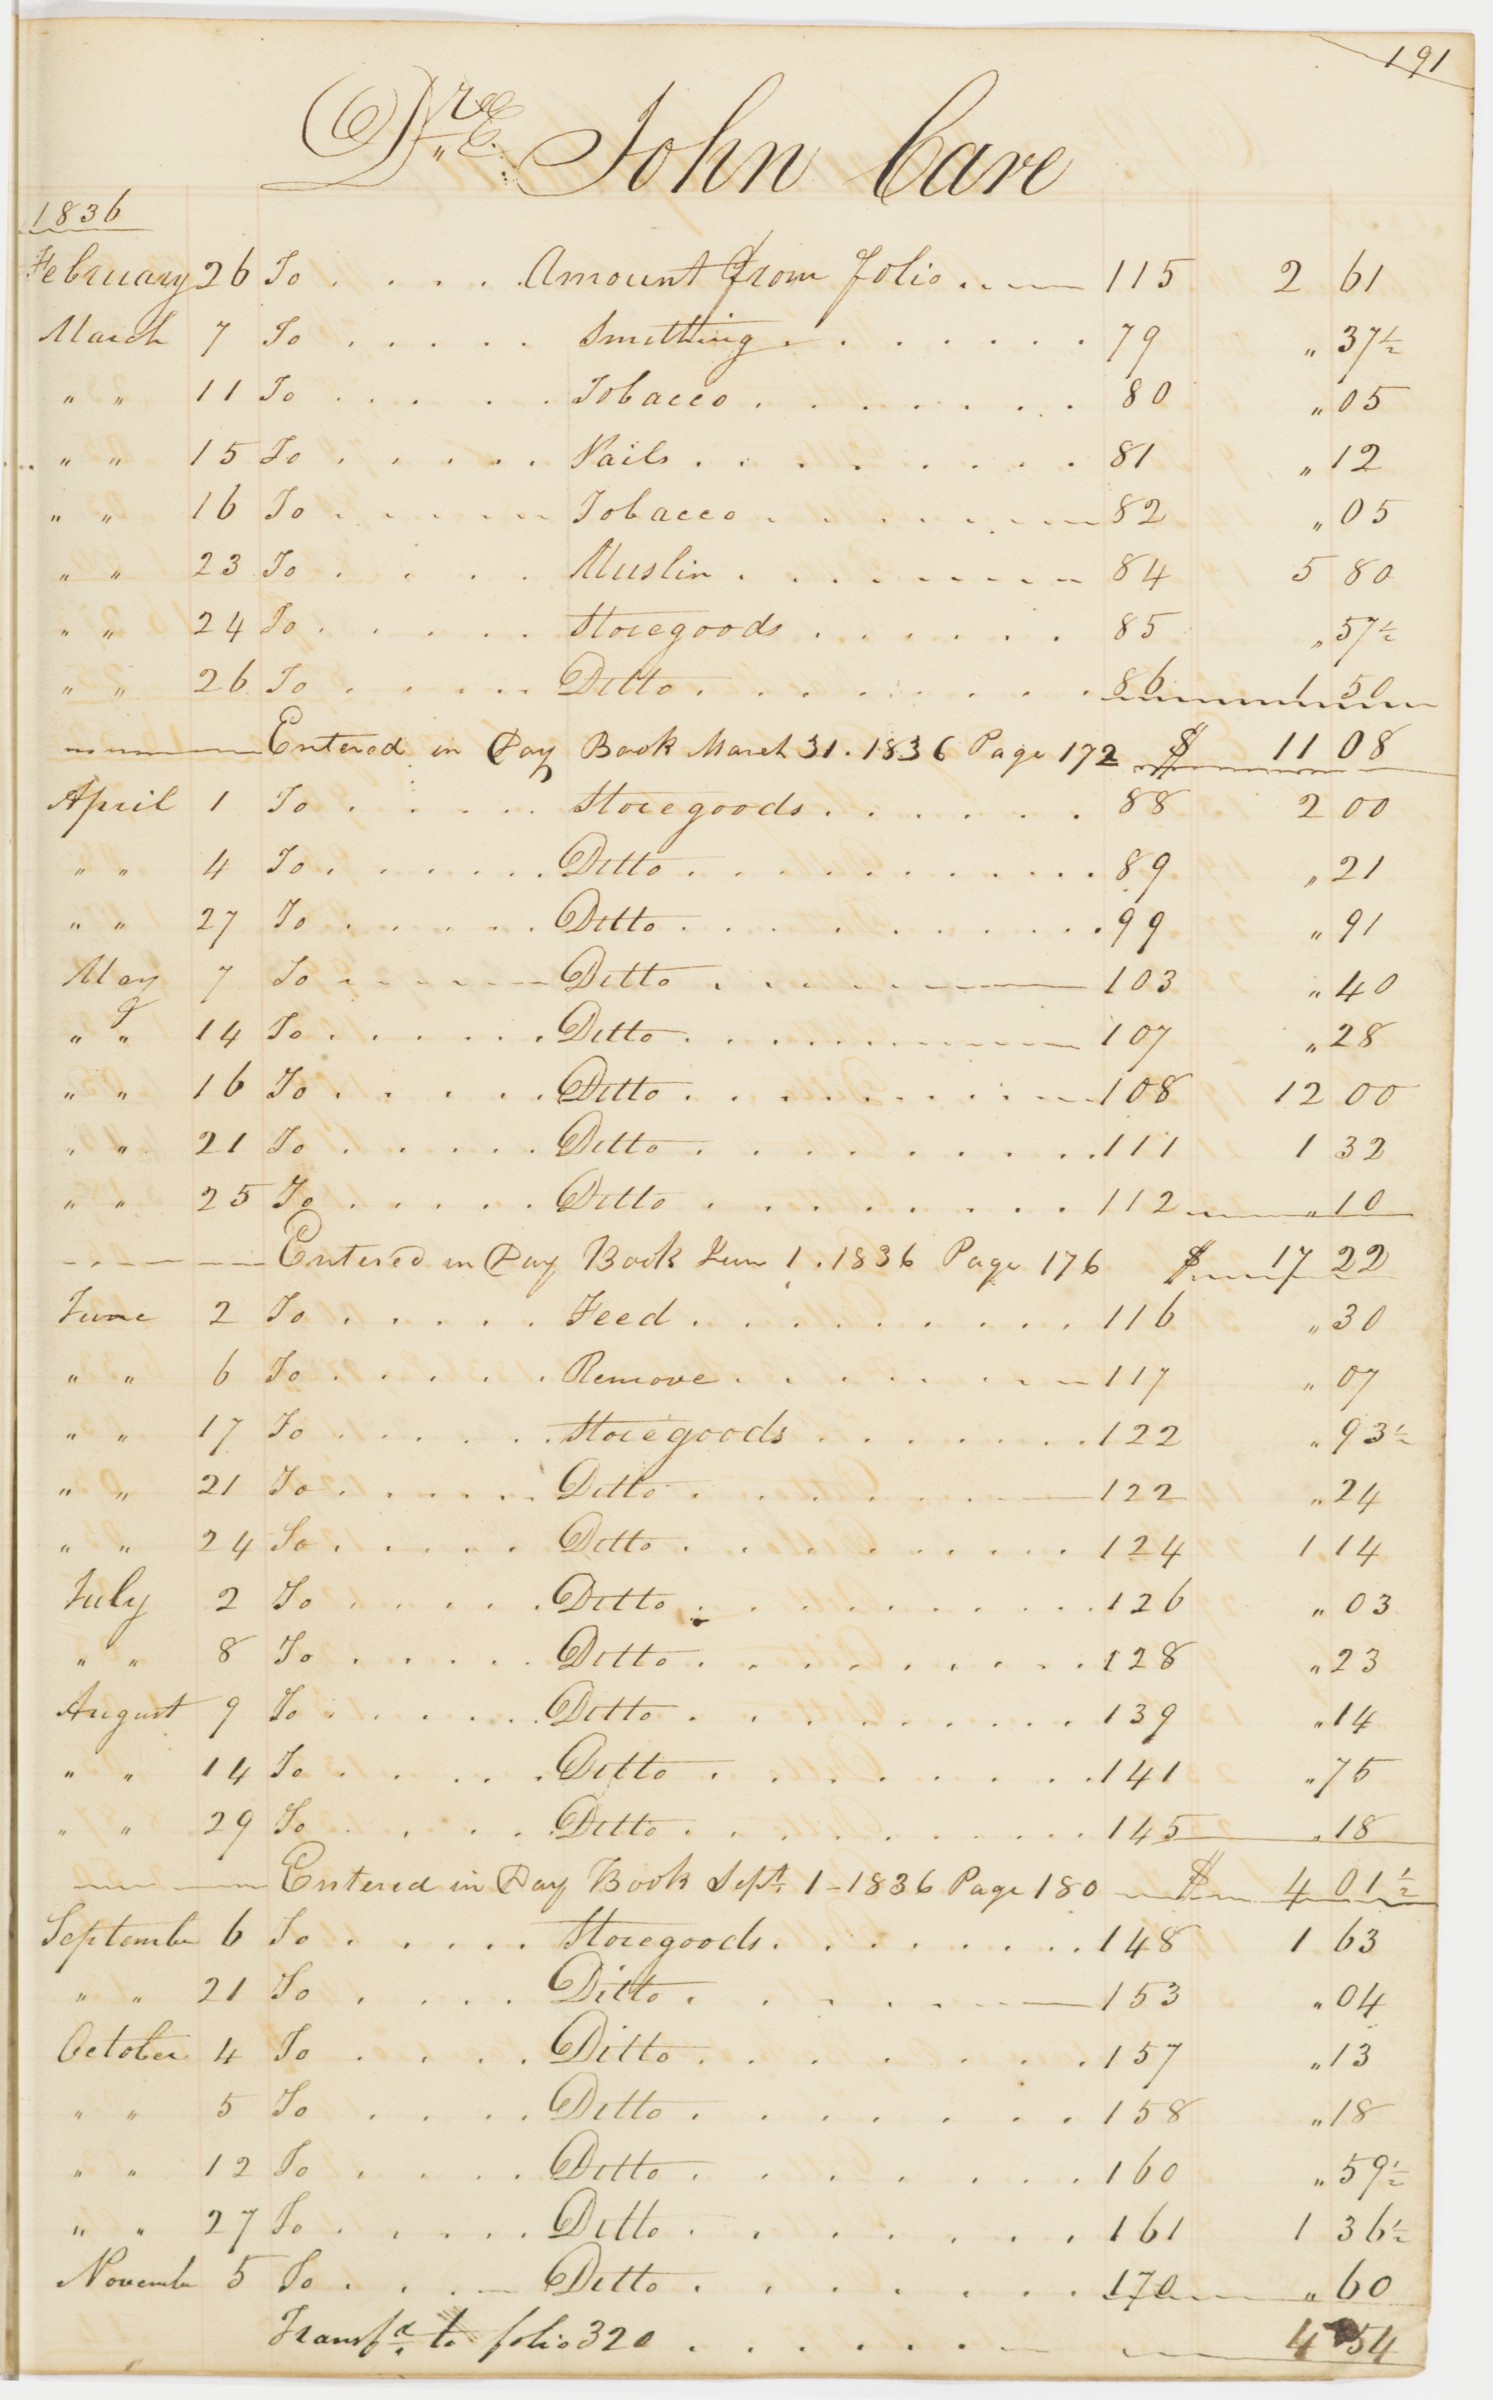 191
Dr. John Care
1836
February 26 To . . . . Amount from folio . . 115 2 61
March 7 To . . . . . Smithing . . . . . . . 79 " 37½
" " 11 To . . . . . Tobacco . . . . . . . 80 " 05
" " 15 To . . . . . Nails . . . . . . . . 81 " 12
" " 16 To . . . . . Tobacco . . . . . . . 82 " 05
" " 23 To . . . . Muslin . . . . . . . . 84 5 80
" " 24 To . . . . . Storegoods . . . . . . 85 " 57½
" " 26 To . . . . . Ditto . . . . . . . . 86 1 50
Entered in Day Book March 31. 1836 Page 172 $ 11 08
April 1 To . . . . . Storegoods . . . . . . 88 2 00
" " 4 To . . . . . . Ditto . . . . . . . . . 89 " 21
" " 27 To . . . . . Ditto . . . . . . . . . 99 " 91
May 7 To . . . . . Ditto . . . . . . 103 " 40
" " 14 To . . . . . . Ditto . . . . . . . . 107 " 28
" " 16 To . . . . . Ditto . . . . . . . . . 108 12 00
" " 21 To . . . . . Ditto . . . . . . . . . 111 1 32
" " 25 To . . . . . Ditto . . . . . . . . 112 " 10
Entered in Day Book June 1. 1836 Page 176 $ 17 22
June 2 To . . . . . Feed . . . . . . . . . 116 " 30
" " 6 To . . . . . Remove . . . . . . . 117 " 07
" " 17 To . . . . . Storegoods . . . . . . . 122 " 93½
" " 21 To . . . . . Ditto . . . . . . 122 " 24
" " 24 To . . . . . Ditto . . . . . . . . . 124 1 14
July 2 To . . . . . Ditto . . . . . . . . . 126 " 03
" " 8 To . . . . . Ditto . . . . . . . . . 128 " 23
August 9 To . . . . . Ditto . . . . . . . . . 139 " 14
" " 14 To . . . . . Ditto . . . . . . . . 141 " 75
" " 29 To . . . . Ditto . . . . . . . . . 145 " 18
Entered in Day Book Sept. 1 - 1836 Page 180 $ 4 01½
September 6 To . . . . . Storegoods . . . . . . . 148 1 63
" " 21 To . . . . Ditto . . . . . . 153 " 04
October 4 To . . . . Ditto . . . . . . . . 157 " 13
" " 5 To . . . . Ditto . . . . . . . . 158 " 18
" " 12 To . . . . Ditto . . . . . . . . 160 " 59½
" " 27 To . . . . . Ditto . . . . . . . . 161 1 36½
Novembe 5 To . . . Ditto . . . . . . . . 170 " 60
Transfd. to folio 320 . . . . . . . 4 54